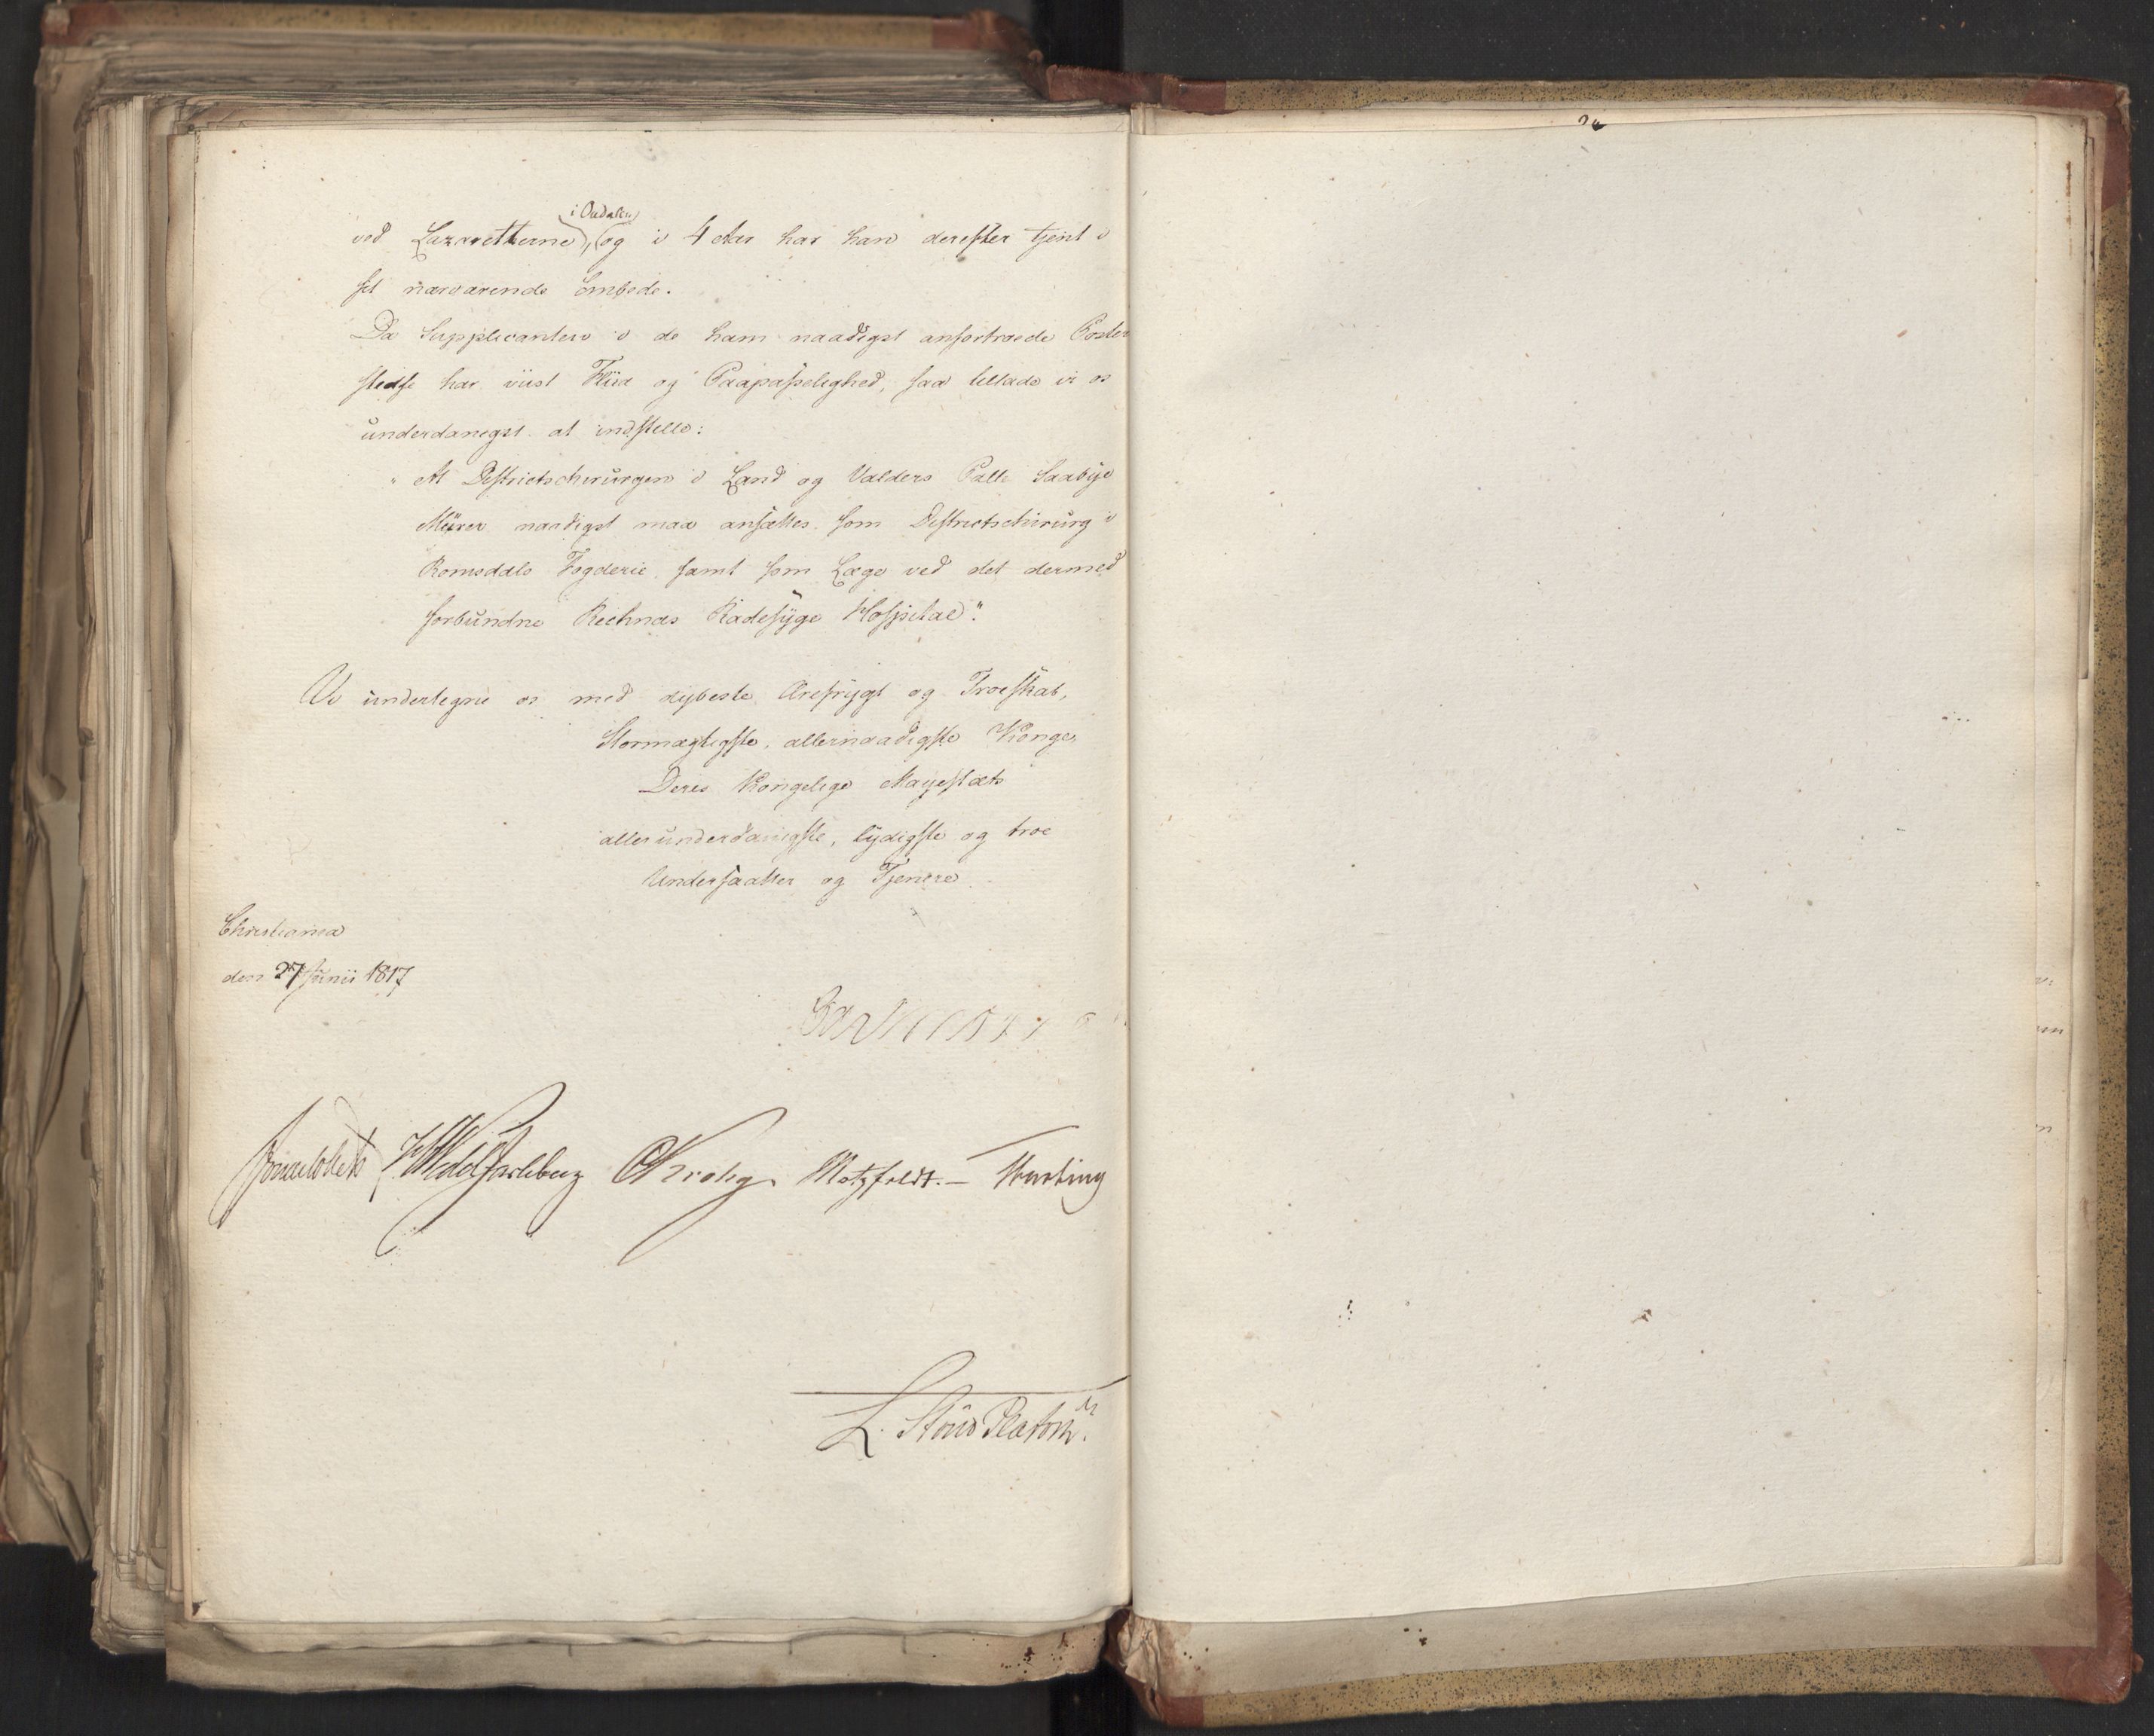 i Oudalen
ved Lazaretterne, og i 4 Aar har han derefter tjent i
sit nærværende Embede.
Da Supplicanten i de ham naadigst anfortroede Poster
stedse har viist Fliid og Paapasselighed, saa tillade vi os
underdanigst at indstille:
"At Districtschirurgen i Land og Valders Palle Saabye
Mürer naadigst maa ansættes som Districtschirurg i
Romsdals Fogderie samt som Læge ved det dermed
forbundne Recknæs Radesyge Hospital".
Vi undertegne os med dybeste Ærefrygt og Troeskab,
Stormægtigste, allernaadigste Konge,
Deres Kongelige Mayestæts
allerunderdanigste, lydigste og troe
Undersaatter og Tjenere
Christiania
den 27 Junii 1817
Sommerhielm HWedelJarlsberg CKrohg Motzfeldt.- Hersleb
L. Stoud Platou